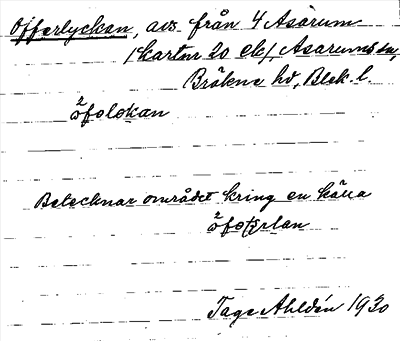 Offerlyckan, avs. från 4 Asarum
(kartnr 20 ek), Asarums sn,
Bräkne hd, Blek. l.
2
åfolokan
Betecknar området kring en källa
2
åfo
Tage Ahldén 1930